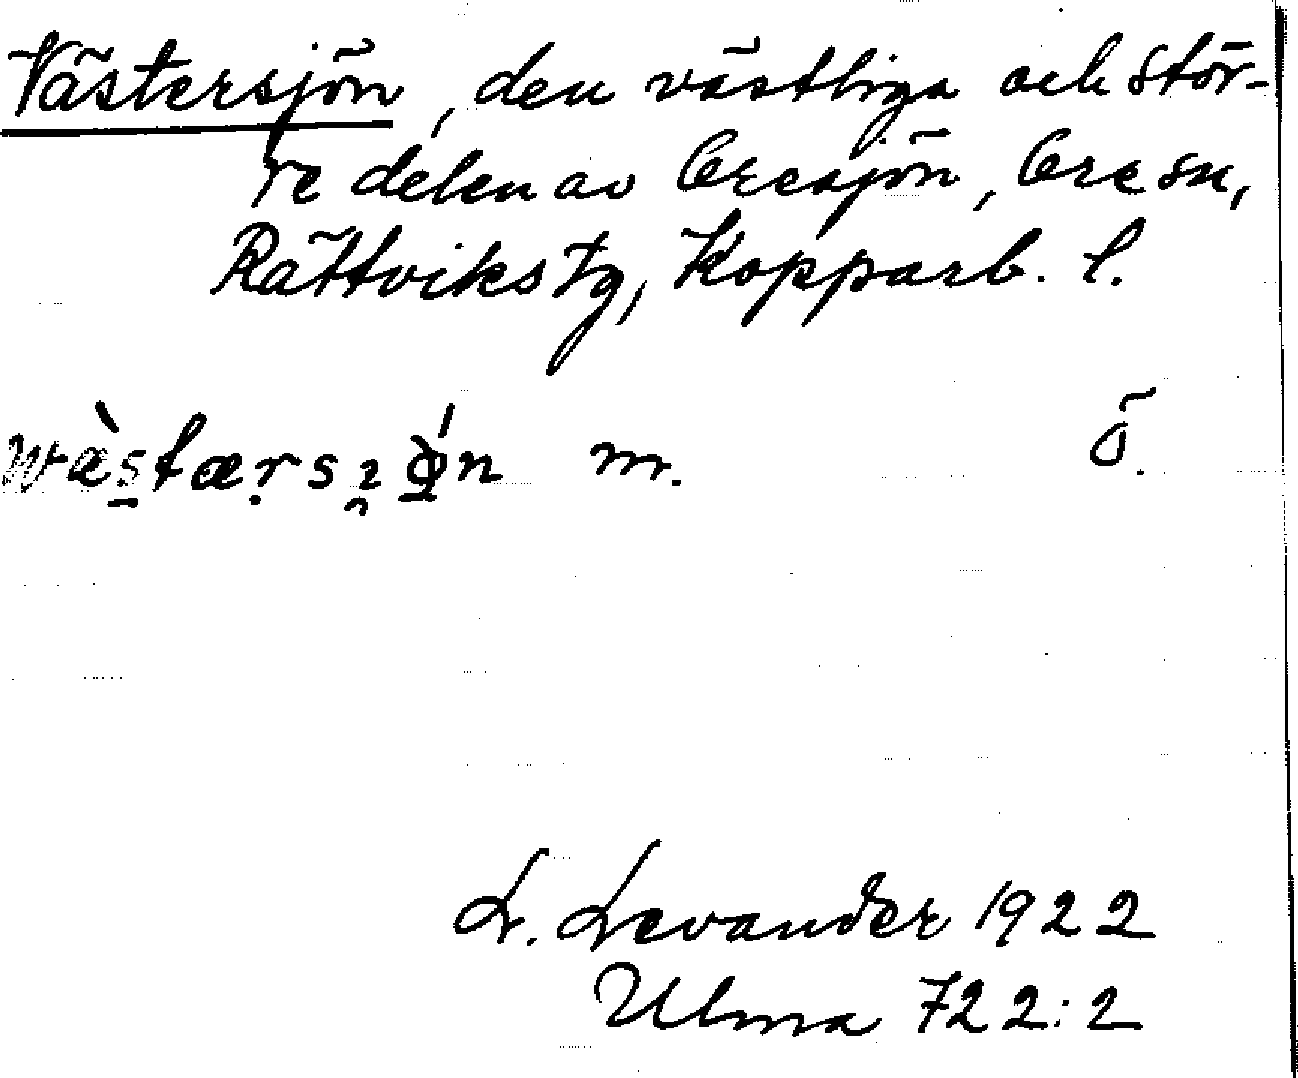 Västersjön, den västliga och stör-
re delen av Oresjön, Ore sn,
Rättviks tg, Kopparb. l.
m. ö.
L. Levander 1922
Ulma 722:2